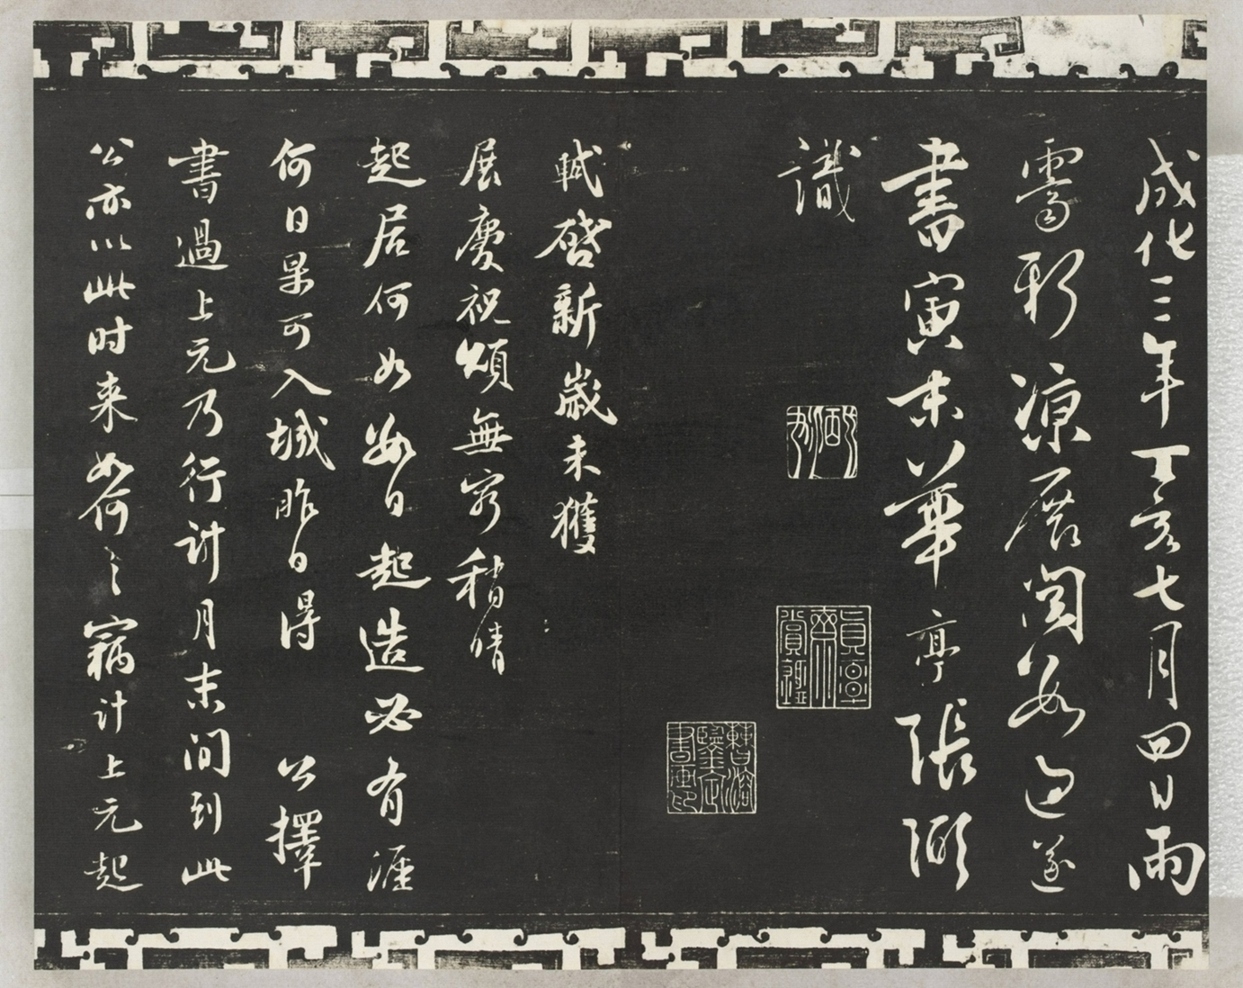 成化三年丁亥七月四日雨
霽新凉展閱數過遂
書寅末華亭張弼
識
軾啓新歲未獲
展慶祝頌無窮稍晴
起居何如數日起造必有涯
何日果可入城昨日得 公擇
書過上元乃行計月末間到此
公亦以此时来如何〻竊計上元起